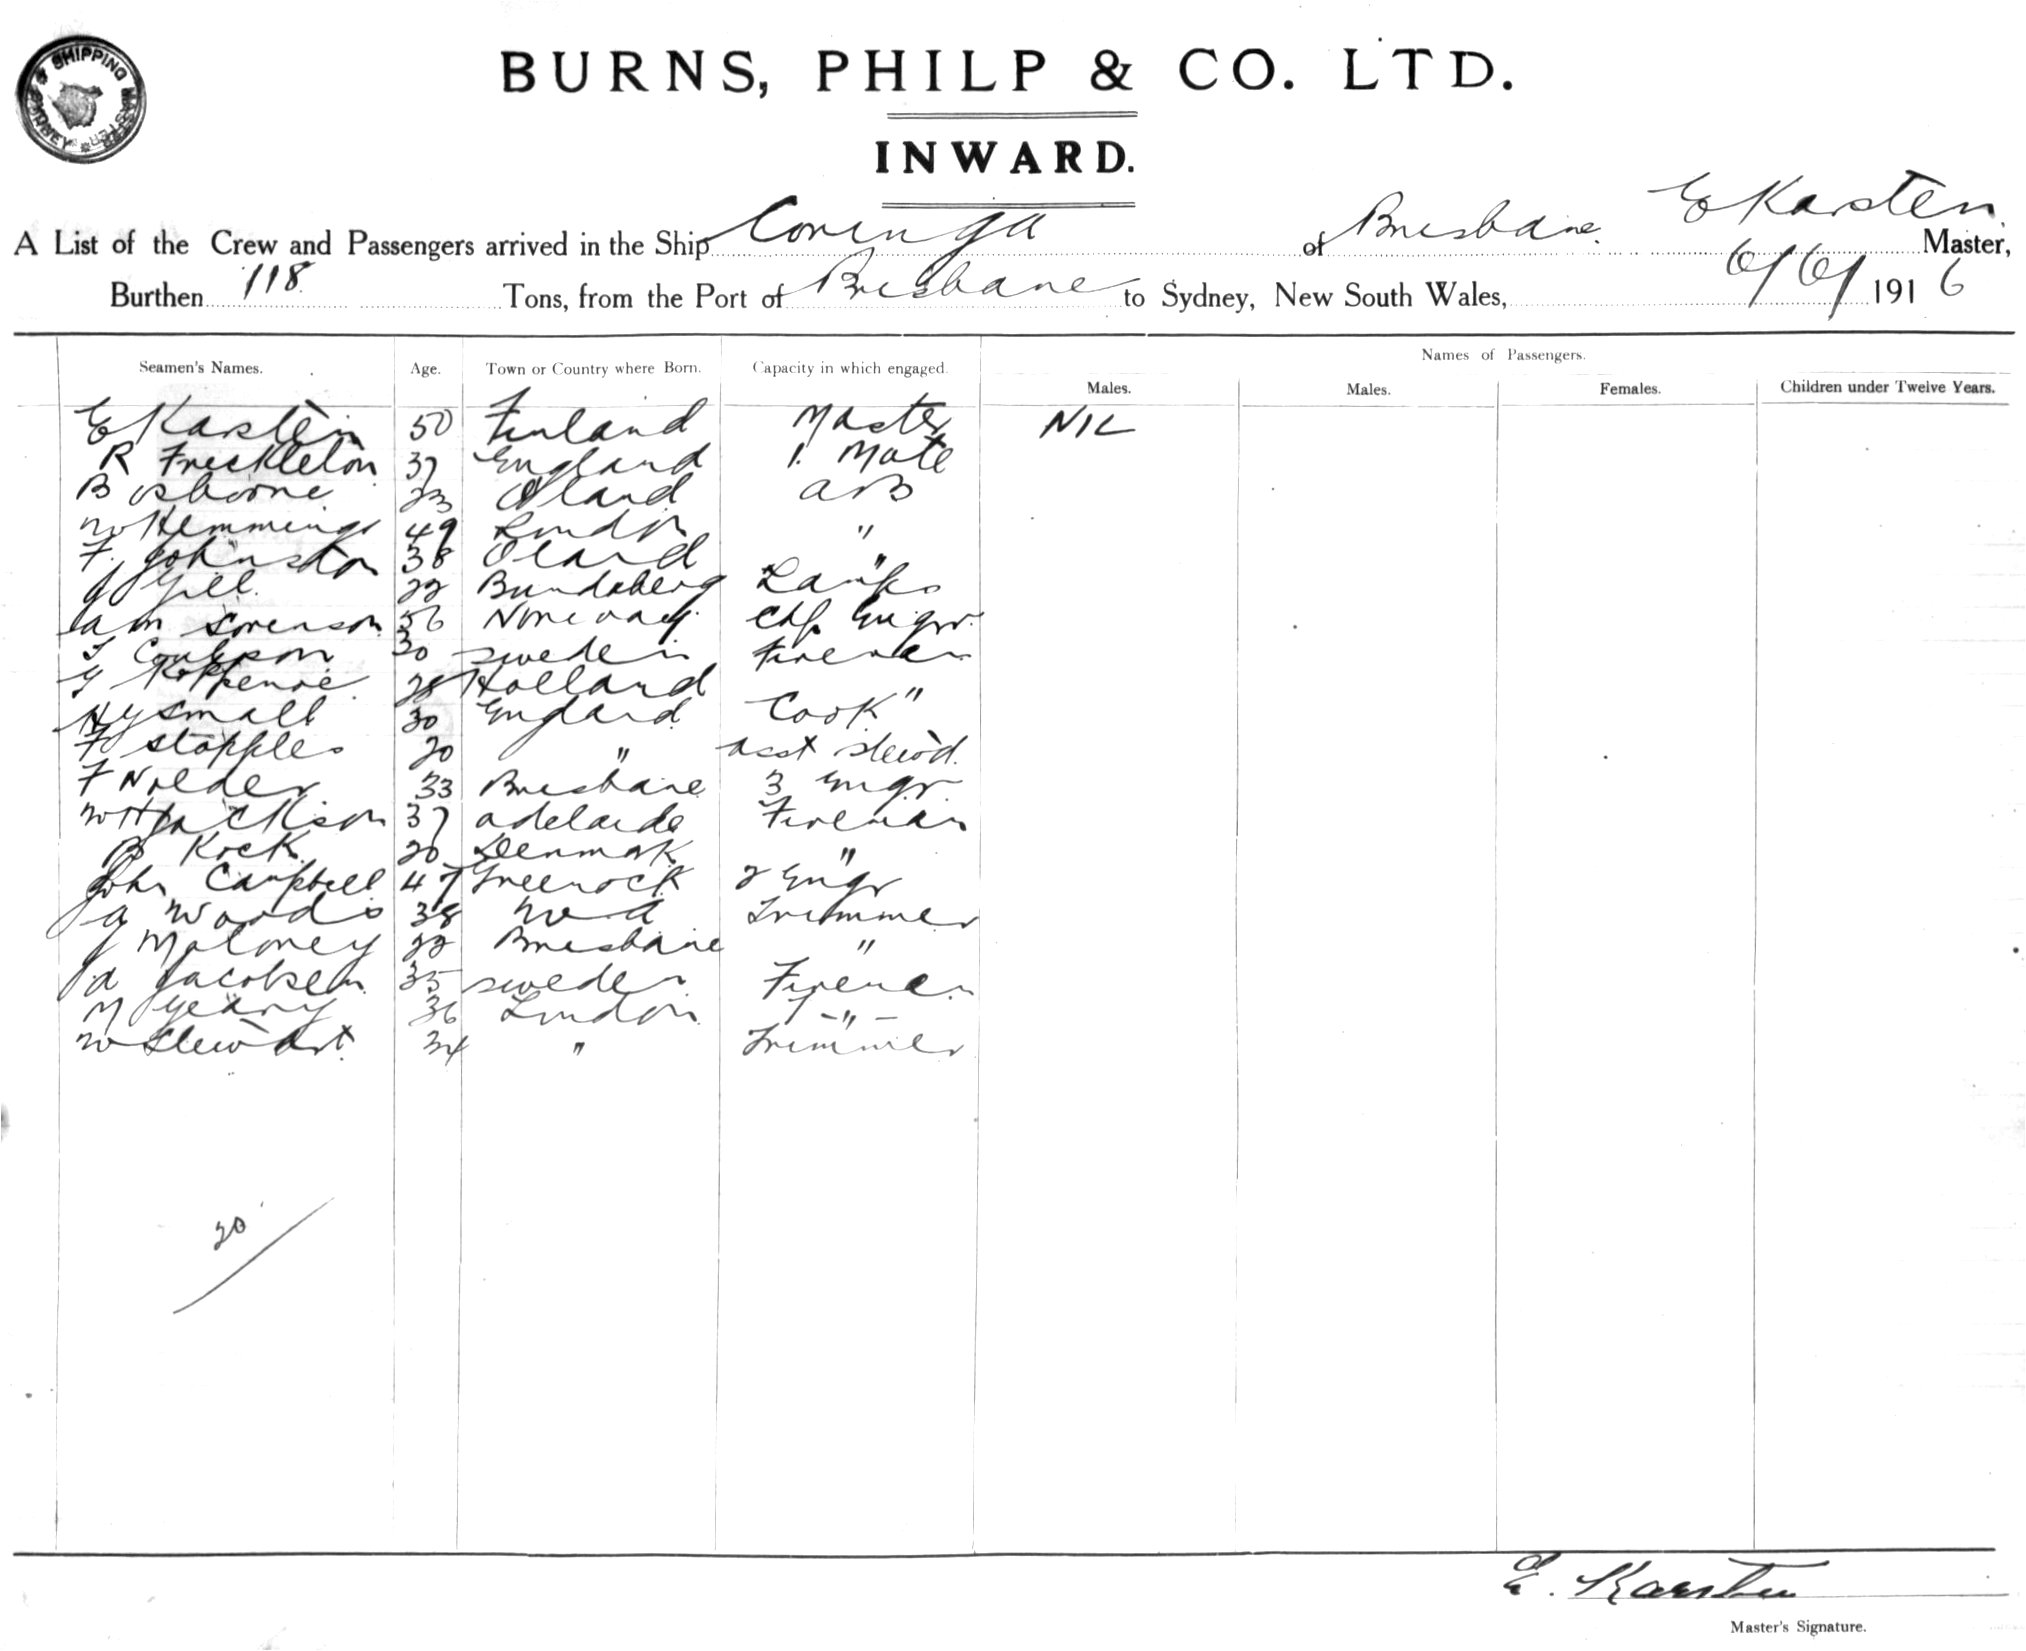 SHIPPING MASTER SYDNEY
BURNS, PHILP & CO. LTD.
INWARD.
A List of the Crew and Passengers arrived in the Ship Coringa of Brisbane. E Karsten Master,
Burthen 118 Tons, from the Port of Brisbane to Sydney, New South Wales, 6/6/ 1916
Seamen's Names. Age. Town or Country where Born. Capacity in which engaged. Names of Passengers.
Males. Males. Females. Children under Twelve Years.
E Karsten 50 Finland Master NIL
R Freckleton 37 England 1. Mate
B Osborne 23 Oland AB
W Hemmings 49 London "
F. Johnston 38 Oland "
J Gill. 22 Bundaberg Lamps
A M Sorenson 56 Norway Chf. Engr.
Coulson 30 Sweden Fireman
28 Holland "
Hy Small 30 England Cook
F Stapples 20 " Asst Stewd.
F Nolder 33 Brisbane 3 Engr.
W H Jackson 37 Adelaide Fireman
B Kock 20 Denmark "
John Campbell 47 Greenock 2 Engr
G Woods 38 Trimmer
J Moloney 22 Brisbane "
A Jacobsen 35 Sweden Fireman
M Geary 36 London -"-
W Stewart. 34 " Trimmer
20
E. Karsten
Master's Signature.